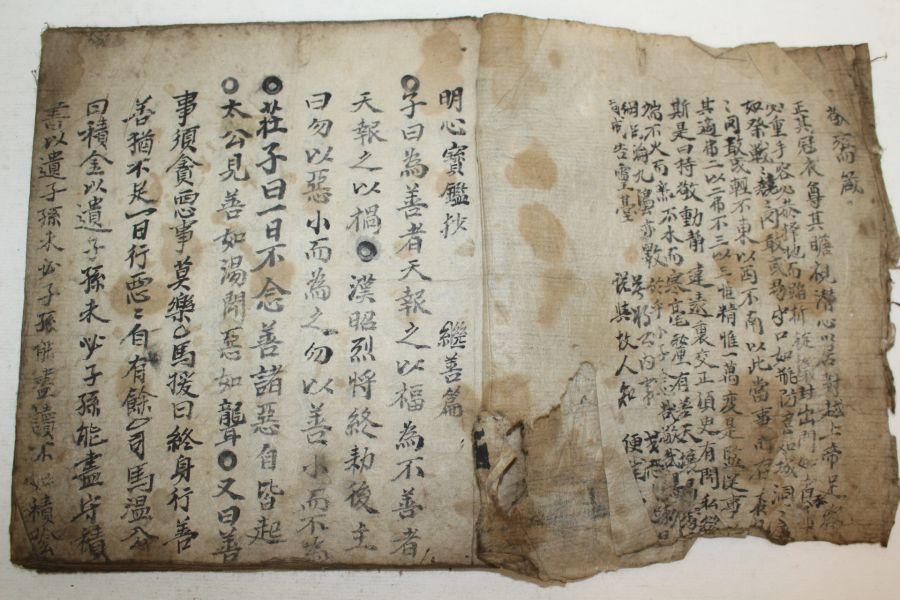 敬齋箴
正其冠衣尊其瞻視潛心以居對越上帝足容
必重手容必恭擇地而蹈折旋蟻封出門如賓
如祭戰〻兢〻罔敢或易守口如瓶防意如城洞〻
〻罔敢或輕不東以西不南以此當事而存
其適弗二以二弗不三以三惟精惟一萬變是監從事
斯是曰持敬動靜違表裏交正須臾有間私欲
端不火而熱不水而寒毫釐有差天壤易處
綱淪九灋亦斁於乎小子念哉敬哉
司戒告靈臺
明心寶鑑抄 繼善篇
子曰為善者天報之以福為不善者
天報之以禍 漢昭烈將終勑後主
曰勿以惡小而為之勿以善小而不為
莊子曰一日不念善諸惡自皆起
太公見善如湯聞惡如聾 又曰善
事須貪惡事莫樂 馬援曰終身行善
善猶不足一日行惡〻自有餘 司馬溫公
曰積金以遺子孫未必子孫能盡守積
書以遺子孫未必子孫能盡讀不如積陰